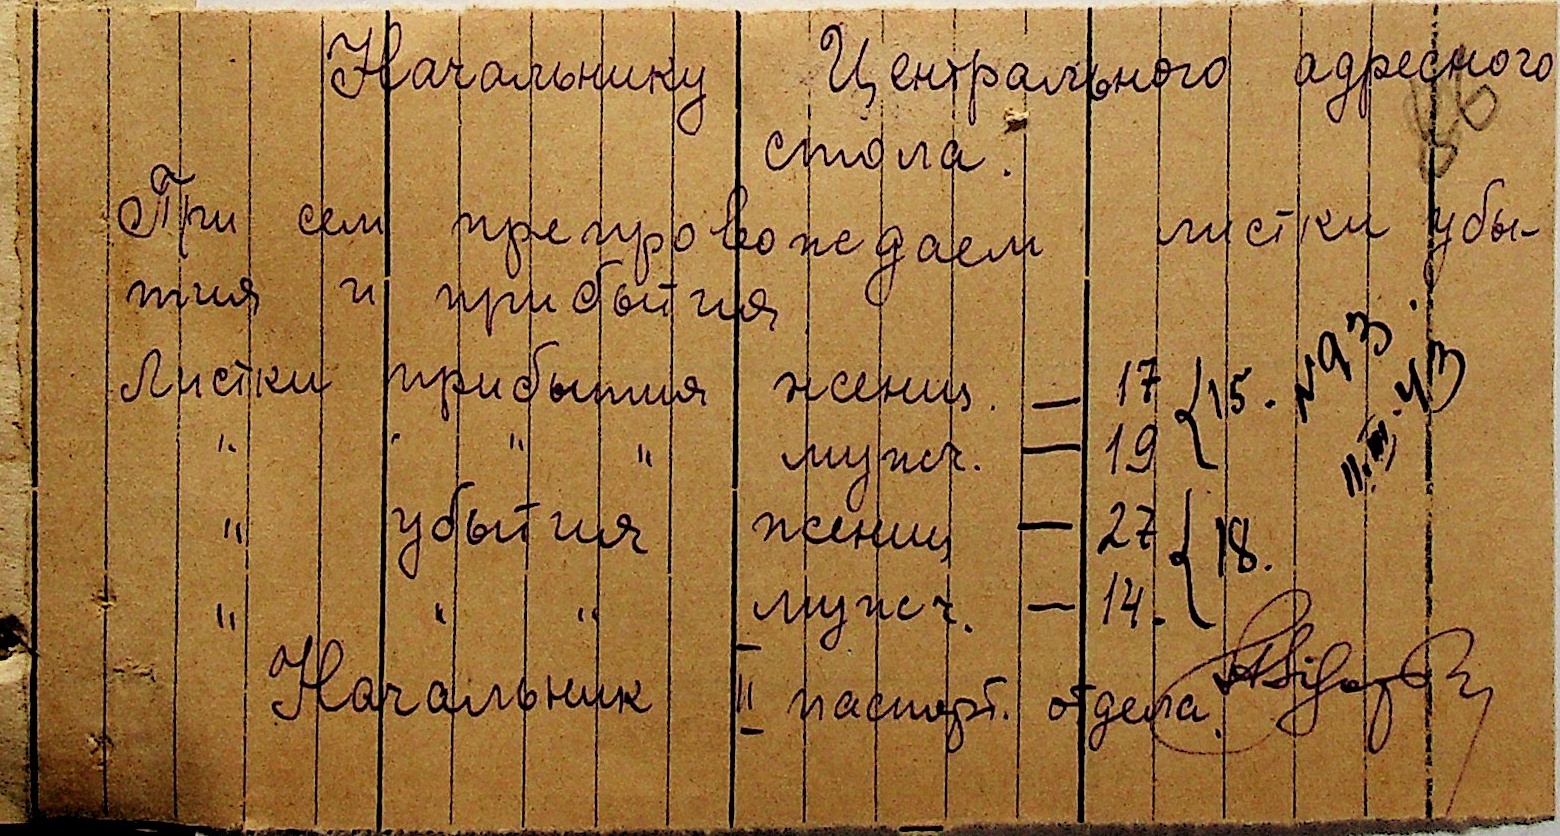 Начальнику Центрального адресного
стола.
При сем препровождаем листки убы-
тия и прибытия
Листки прибытия женщ. — 17 { 15. №93
" " " " мужч. — 19 11.III.43
" убытия женщ — 27 { 18.
" " " мужч. — 14.
Начальник II паспорт. отдела.